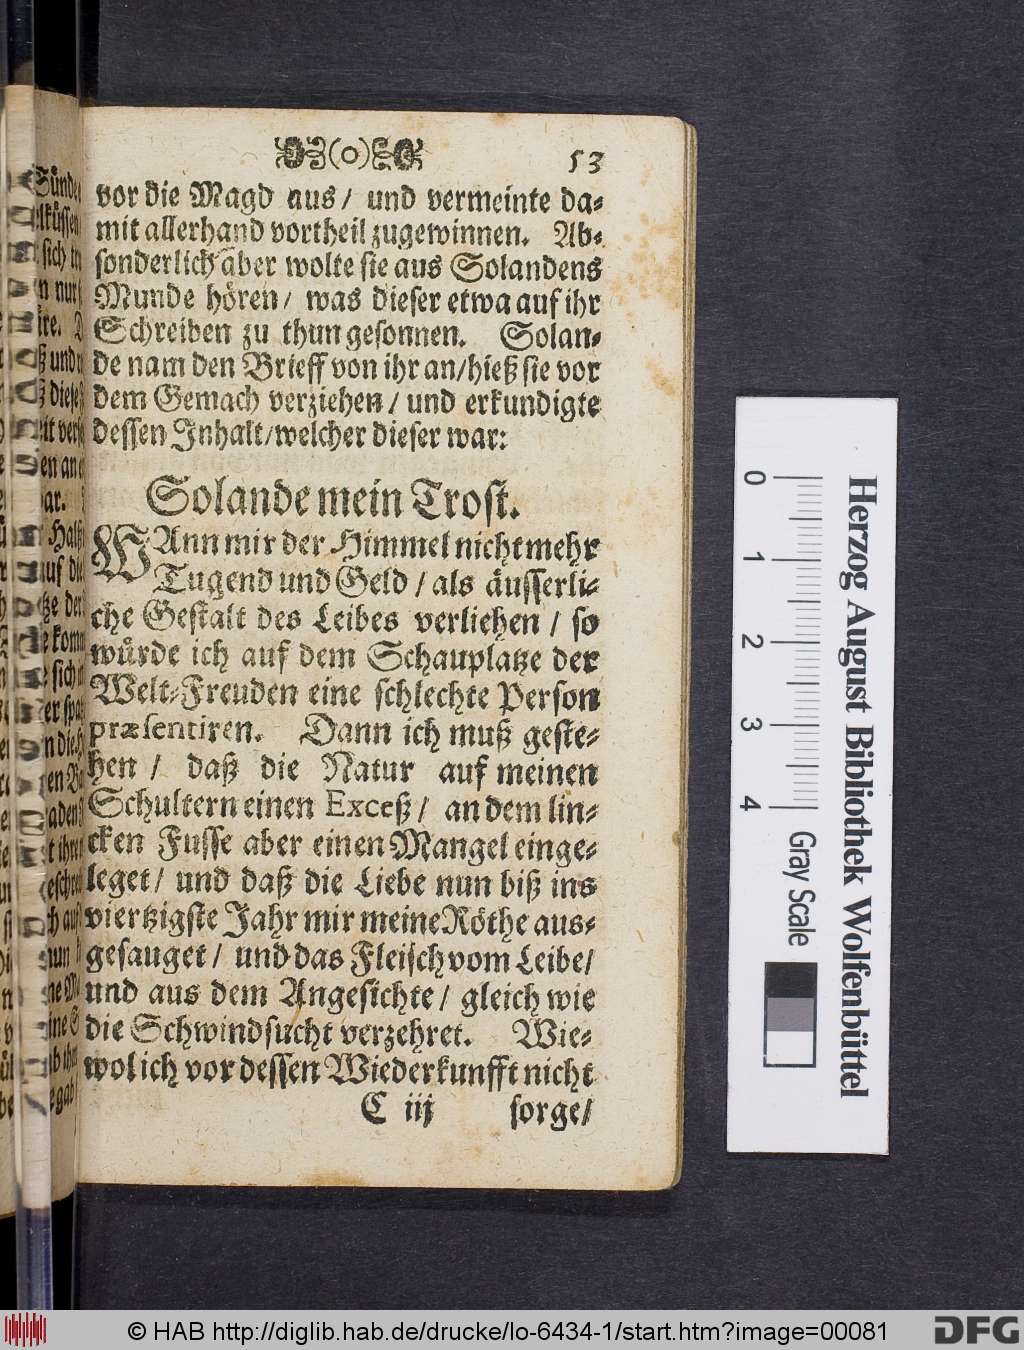 (o)
53
vor die Magd aus/ und vermeinte da-
mit allerhand vortheil zugewinnen. Ab-
sonderlich aber wolte sie aus Solandens
Munde hören/ was dieser etwa auf ihr
Schreiben zu thun gesonnen. Solan-
de nam den Brieff von ihr an/hieß sie vor
dem Gemach verziehen/ und erkundigte
dessen Inhalt/welcher dieser war:
Solande mein Trost.
WAnn mir der Himmel nicht mehr
Tugend und Geld/ als äusserli-
che Gestalt des Leibes verliehen/ so
würde ich auf dem Schauplatze der
Welt-Freuden eine schlechte Person
præsentiren. Dann ich muß geste-
hen/ daß die Natur auf meinen
Schultern einen Exceß/ an dem lin-
cken Fusse aber einen Mangel einge-
leget/ und daß die Liebe nun biß ins
viertzigste Jahr mir meine Röthe aus-
gesauget/ und das Fleisch vom Leibe/
und aus dem Angesichte/ gleich wie
die Schwindsucht verzehret. Wie-
wol ich vor dessen Wiederkunfft nicht
C iij sorge/
0 1 2 3 4
Gray Scale
Herzog August Bibliothek Wolfenbüttel
© HAB http://diglib.hab.de/drucke/lo-6434-1/start.htm?image=00081
DFG